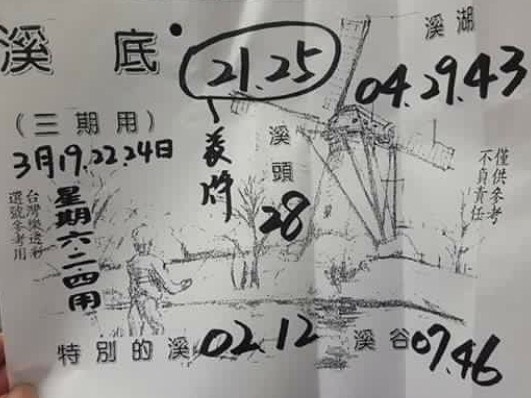 溪底
21.25
溪湖
04.29.43
（三期用）
3月19.22.24日
星期六.二.四用
台灣樂透彩
選號參考用
溪頭
28
僅供參考
不負責任
特別的溪 02.12
溪谷 07.46